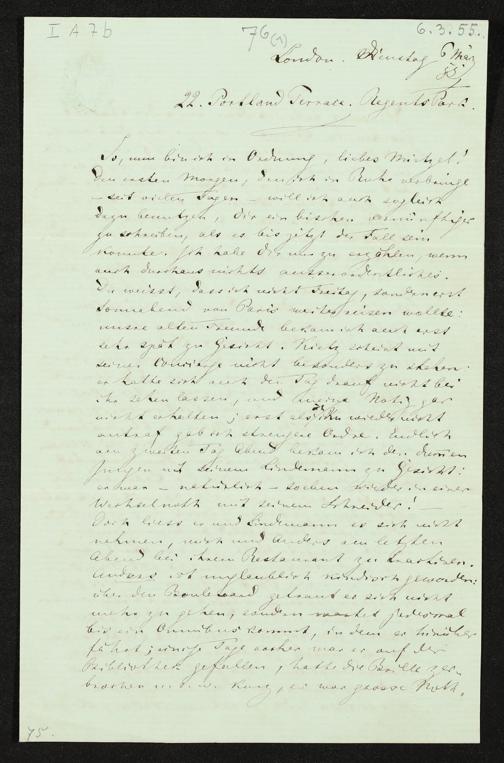 I A 7b
76 (1)
6.3.55.
London. Dienstag 6 März
55
22. Portland Terrace. Regents Park.
So, nun bin ich in Ordnung, liebes Mietzel!
Den ersten Morgen, den ich in Ruhe verbringe
– seit vielen Tagen – will ich auch sogleich
dazu benutzen, Dir ein bischen vernünftiger
zu schreiben, als es bis jetzt der Fall sein
konnte. Ich habe Dir nun zu erzählen, wenn
auch durchaus nichts ausserordentliches.
Du weisst, dass ich nicht Freitag, sondern erst
Sonnabend von Paris weiterreisen wollte:
unsre alten Freunde bekam ich auch erst
sehr spät zu Gesicht. Kietz scheint mit
seiner Concierge nicht besonders zu stehen:
er hatte sich auch den Tag drauf nicht bei
ihr sehen lassen, und meine Notiz gar
nicht erhalten; erst als ich ihn wieder nicht
antraf gab ich strengere Ordre. Endlich
am zweiten Tag Abend bekam ich den
Jungen mit seinem Lindemann zu Gesicht:
er war – natürlich – soeben wieder in einer
Wechselnoth mit seinem Schneider! –
Doch liess er und Lindemann es sich nicht
nehmen, mich und Anders am letzten
Abend bei ihrem Restaurant zu tractiren.
Anders ist unglaublich kindisch geworden:
über den Boulevard getraut er sich nicht
mehr zu gehen, sondern wartet jedesmal
bis ein Omnibus kommt, in dem er hinüber
fährt; einige Tage vorher war er auf der
Bibliothek gefallen, hatte die Brille zer-
brochen kurz, es war grosse Noth.
75.